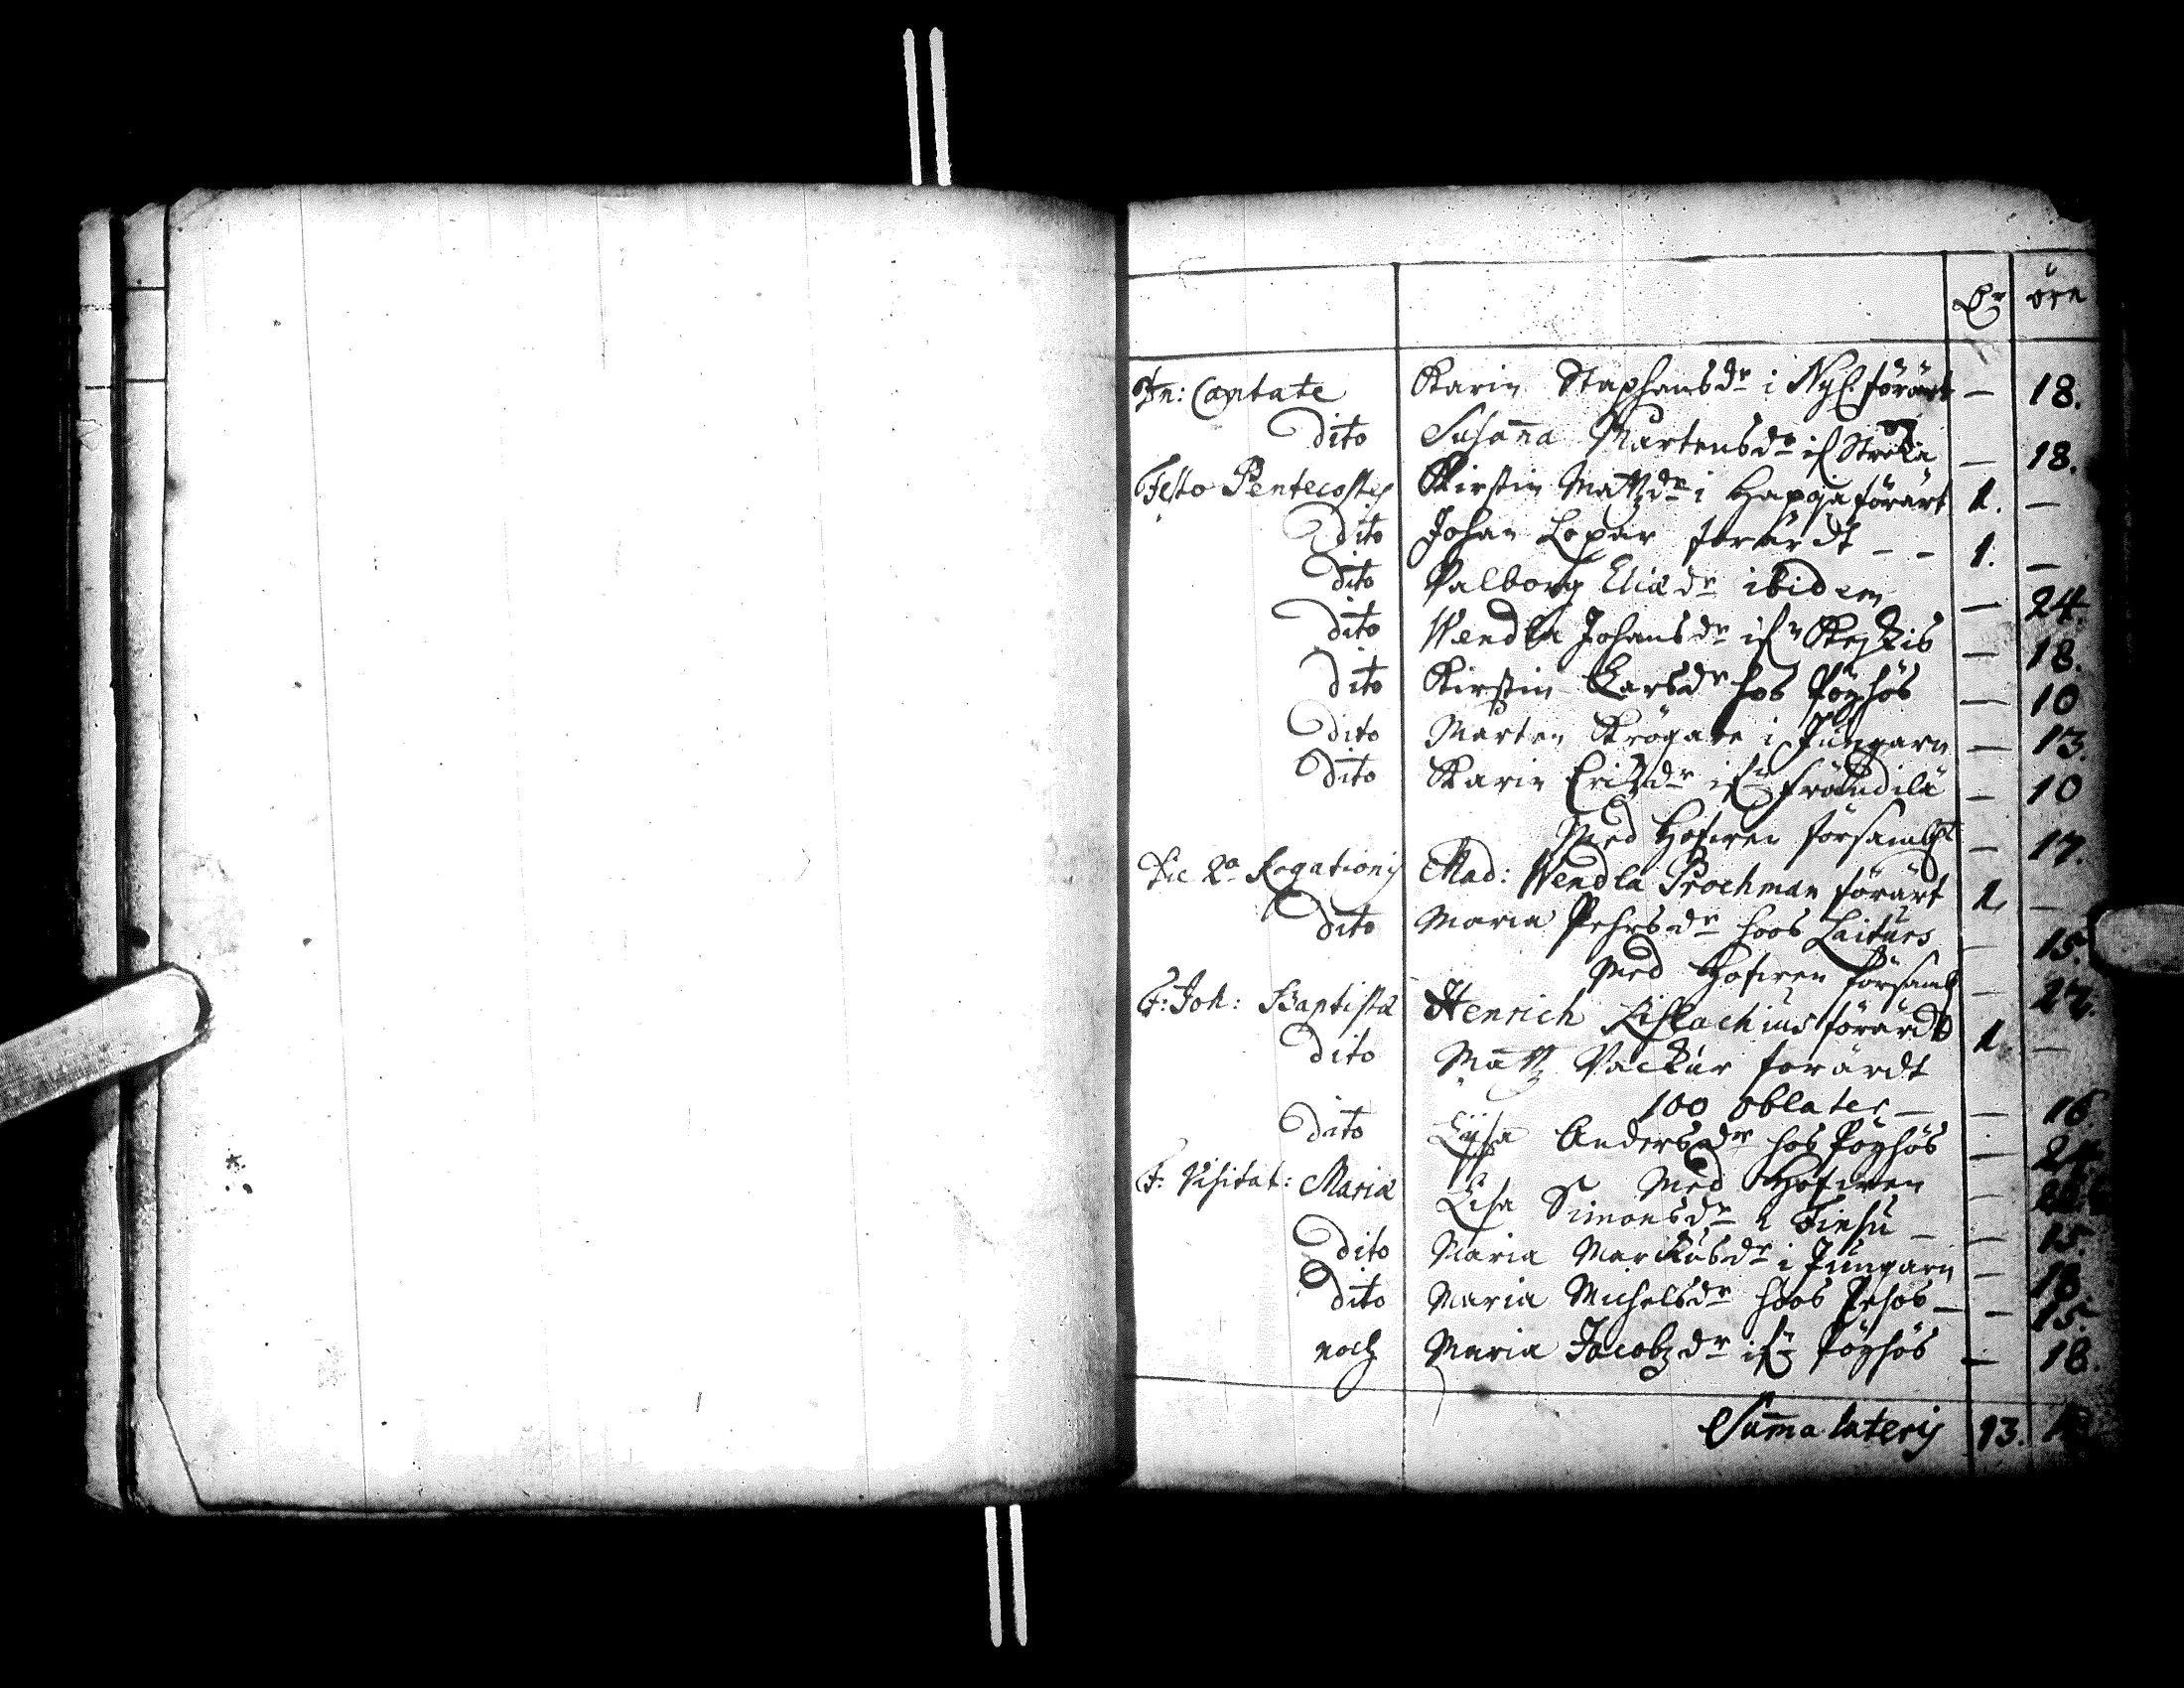 Dr öre
Dn: Cantate Karin Staphansdr i Nyl. förärt — 18.
dito Susanna Mårtensdr — 18.
Festo Pentecostes Kirstin Mattzdr i Hapoja förärt 1. —
dito Johan Lopar förärdt — — 1. —
dito Valborg Eliædr ibidem — 24.
dito Wendla Johansdr — 18.
dito Kirstin Larsdr hos Pöyhös — 10
dito Mårten Krögare i Jungarn — 13.
dito Karin Erikzdr — 10
Med Hofwen församlat — 17.
Die 2a Rogationis Mad: Wendla Prochman förärt 1. —
dito Maria Pehrsdr hoos Laiturs — 15.
Med Hofwen församl — 27.
F: Joh: Baptistæ Henrich Lishlachius förärdt 1. —
dito Mattz Vackur förärdt
100 oblater — — 16.
dito Lijsa Andersdr hos Pöyhös — 24.
Med Hofwen —
F: Visitat: Mariæ Lisa Simonsdr — — 15.
dito Maria Markusdr i Jungarn — 18.
dito Maria Michelsdr hoos Pehos — — 15.
noch Maria Jacobzdr Pöyhös — 18.
Summa lateris 13.